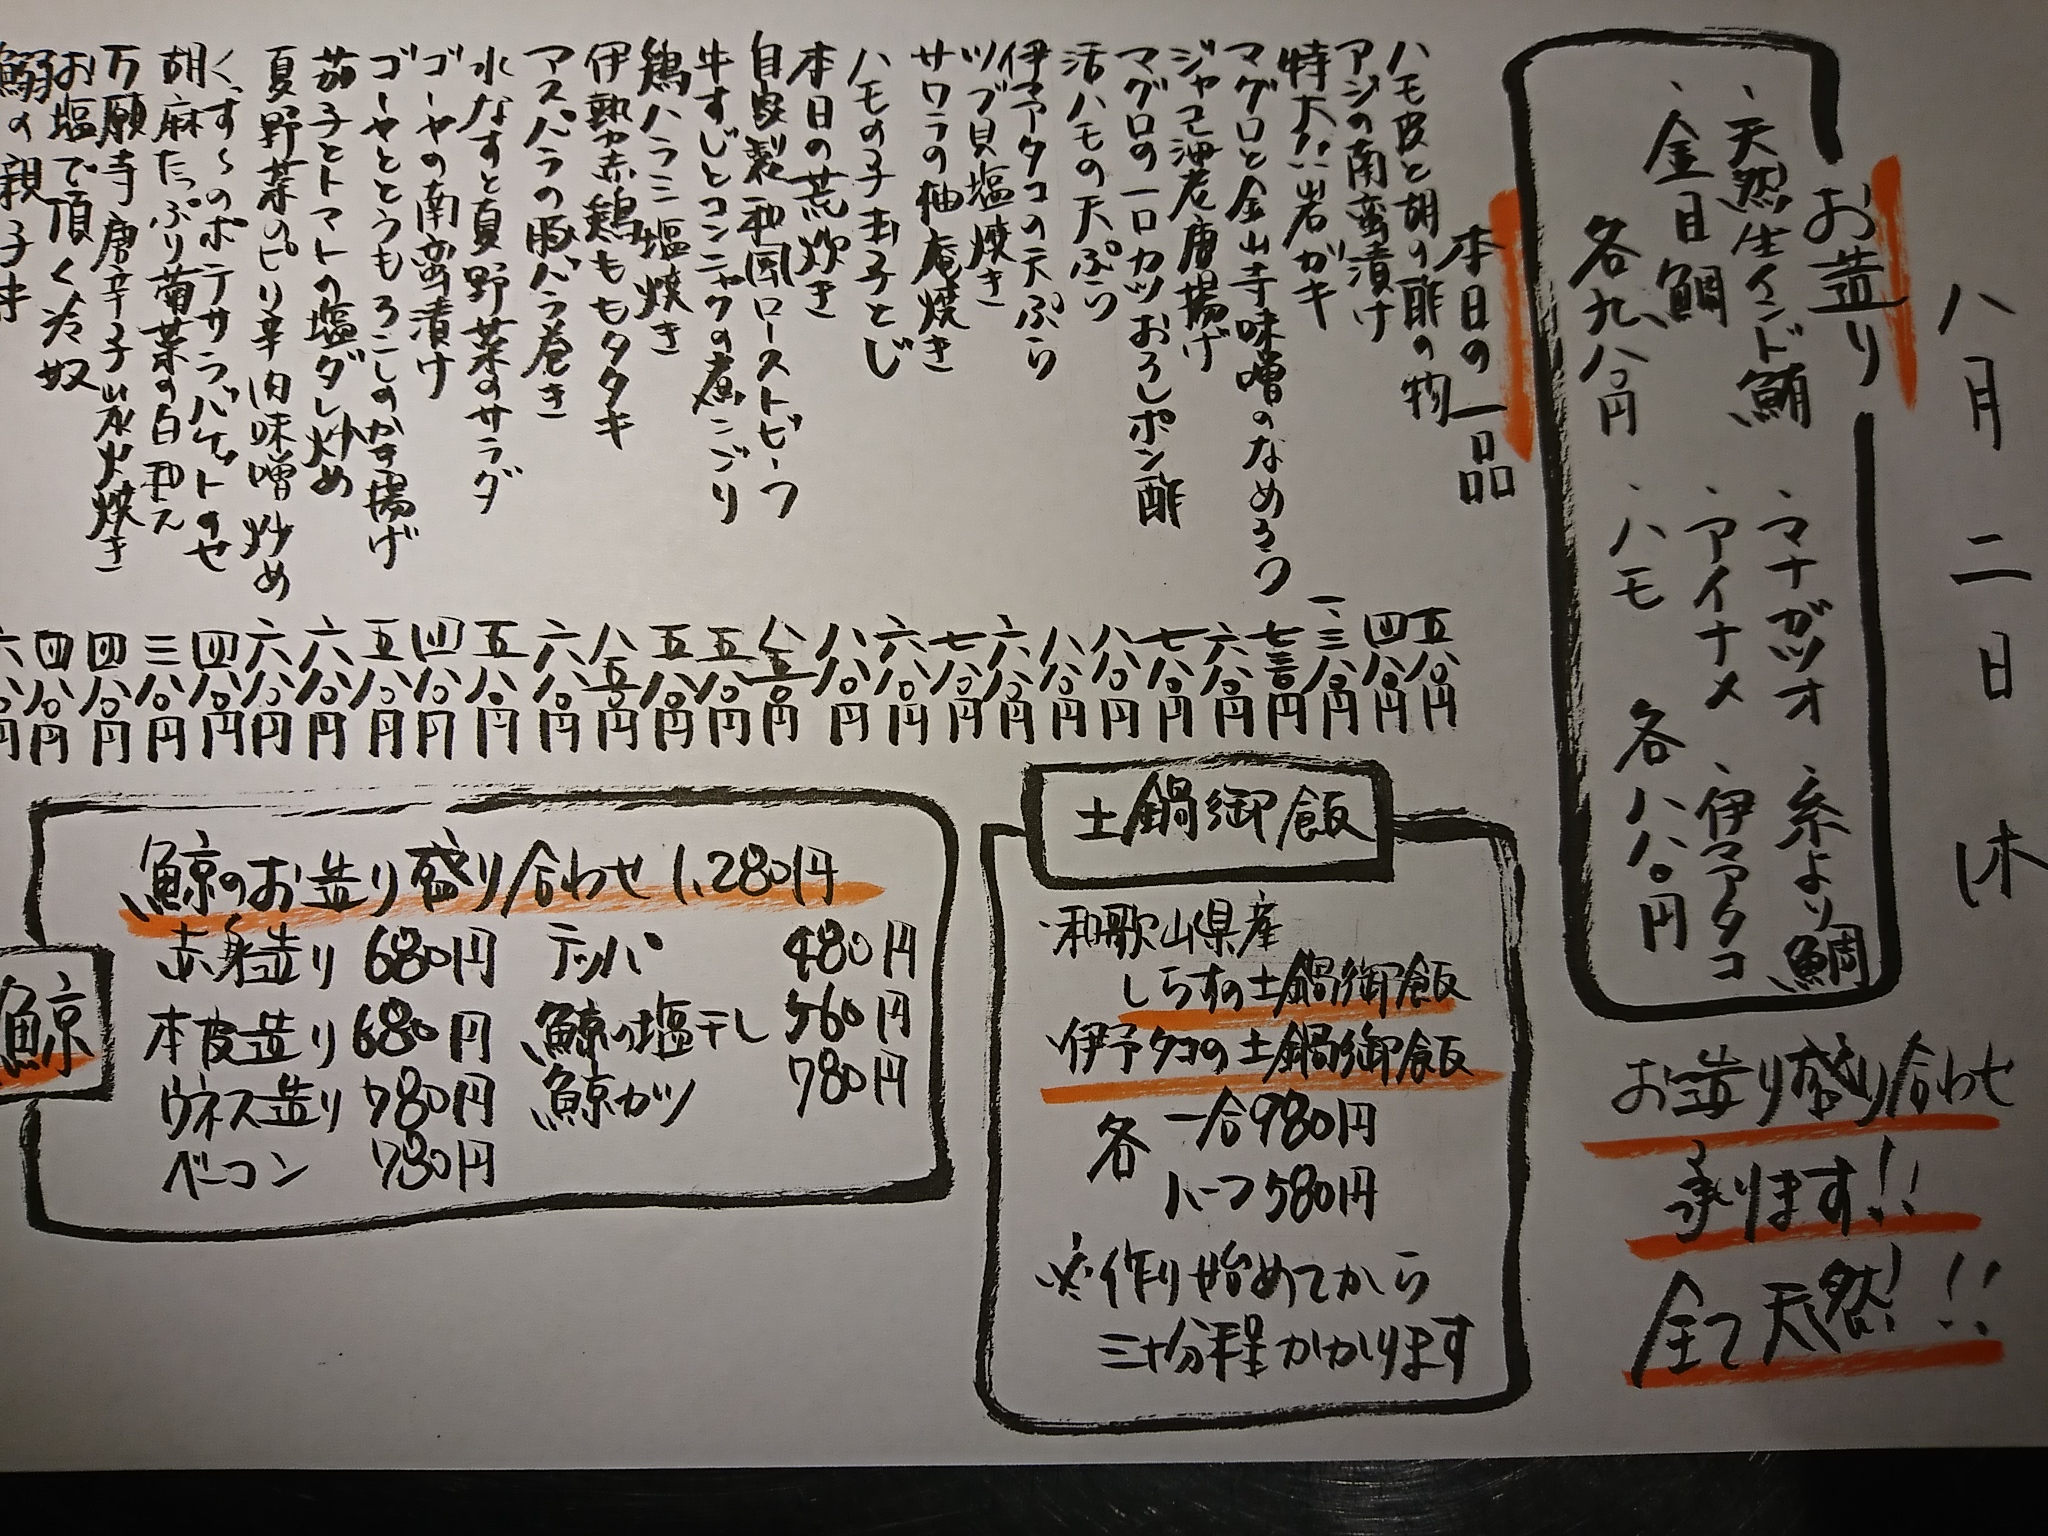 八月二日 木
お造り
・天然生インド鮪
・金目鯛
各九八〇円
・マナガツオ
・糸より鯛
・アイナメ
・伊予タコ
・ハモ
各八八〇円
お造り盛り合わせ
承ります!!
全て天然!!!
本日の一品
ハモ皮と胡の酢の物 五八〇円
アジの南蛮漬け 四八〇円
特大!!岩ガキ 一、三八〇円
マグロと金山寺味噌のなめろう 七三〇円
ジャコ海老唐揚げ 六八〇円
マグロの一口カツおろしポン酢 七八〇円
活ハモの天ぷら 八八〇円
伊予タコの天ぷら 八八〇円
ツブ貝塩焼き 六八〇円
サワラの柚庵焼き 七八〇円
ハモの子玉子とじ 六八〇円
本日の荒炊き 八八〇円
自家製和風ローストビーフ 八五〇円
牛すじとコンニャクの煮こごり 五八〇円
鶏ハラミ塩焼き 五八〇円
伊勢赤鶏ももタタキ 八五〇円
アスパラの豚バラ巻き 六八〇円
水なすと夏野菜のサラダ 五八〇円
ゴーヤの南蛮漬け 四八〇円
ゴーヤととうもろこしのかき揚げ 五八〇円
茄子とトマトの塩ダレ炒め 六八〇円
夏野菜のピリ辛肉味噌炒め 六八〇円
くずし~のポテサラバケットのせ 四八〇円
胡麻たっぷり菊菜の白和え 三八〇円
万願寺唐辛子炭火焼き 四八〇円
お塩で頂く冷奴 四八〇円
鰯の親子丼 六八〇円
土鍋御飯
・和歌山県産
しらすの土鍋御飯
・伊予タコの土鍋御飯
各 一合980円
ハーフ580円
※作り始めてから
三十分程かかります
鯨
鯨のお造り盛り合わせ 1,280円
赤身造り 680円
本皮造り 680円
ウネス造り 780円
ベーコン 780円
テッパ 480円
鯨の塩干し 560円
鯨カツ 780円